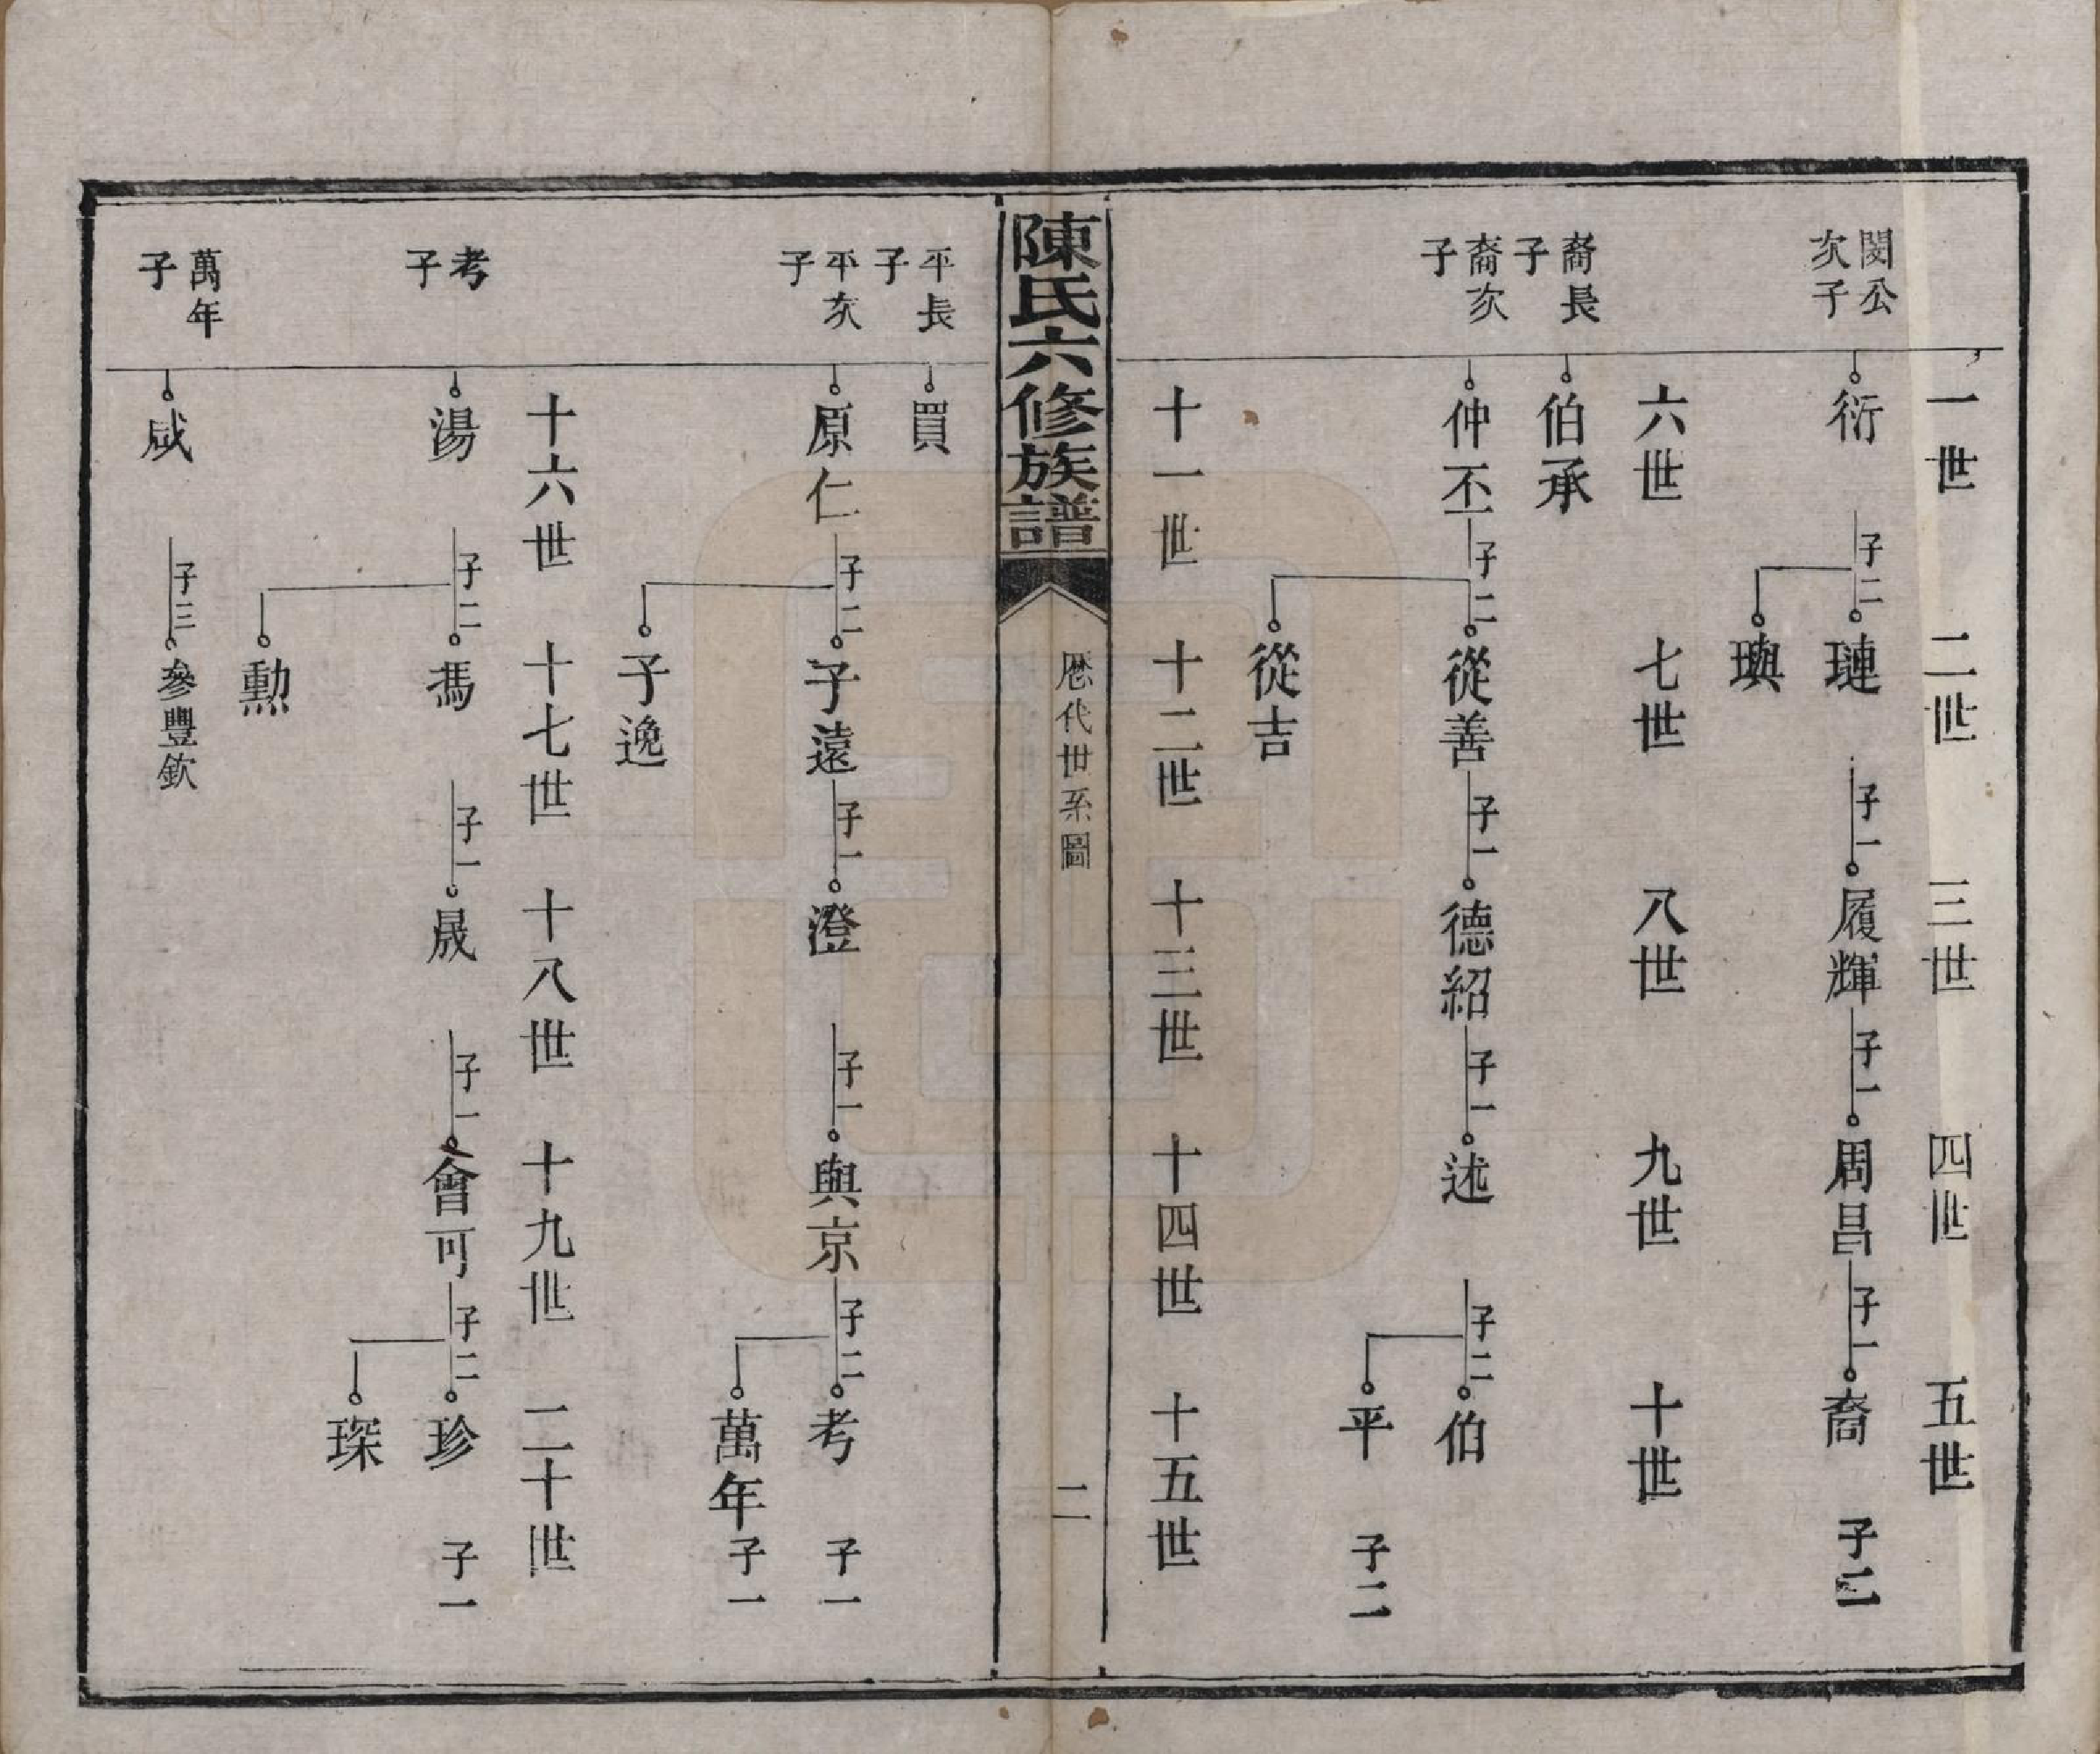 一世 二世 三世 四世 五世
閔公次子
衍 子二 璉 子一 履輝 子一 周昌 子一 裔 子二
璵
六世 七世 八世 九世 十世
裔長子
伯承
裔次子
仲丕 子二 從善 子一 德紹 子一 述 子二 伯
平 子二
從吉
十一世 十二世 十三世 十四世 十五世
陳氏六修族譜
歷代世系圖
二
平長子
買
平次子
原仁 子二 子遠 子一 澄 子一 與京 子二 考 子一
萬年 子一
子逸
十六世 十七世 十八世 十九世 二十世
考子
湯 子二 瑪 子一 晟 子一 會可 子二 珍 子一
琛
勳
萬年子
咸 子三 參豐欽